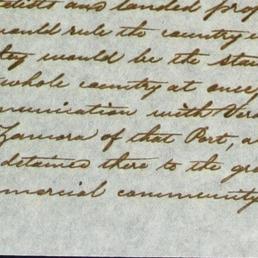 and landed prop
would rule the country
ty would be the sta
whole country at once
munication with Ver
Zamora of that Port, a
detained there to the gr
mmercial community